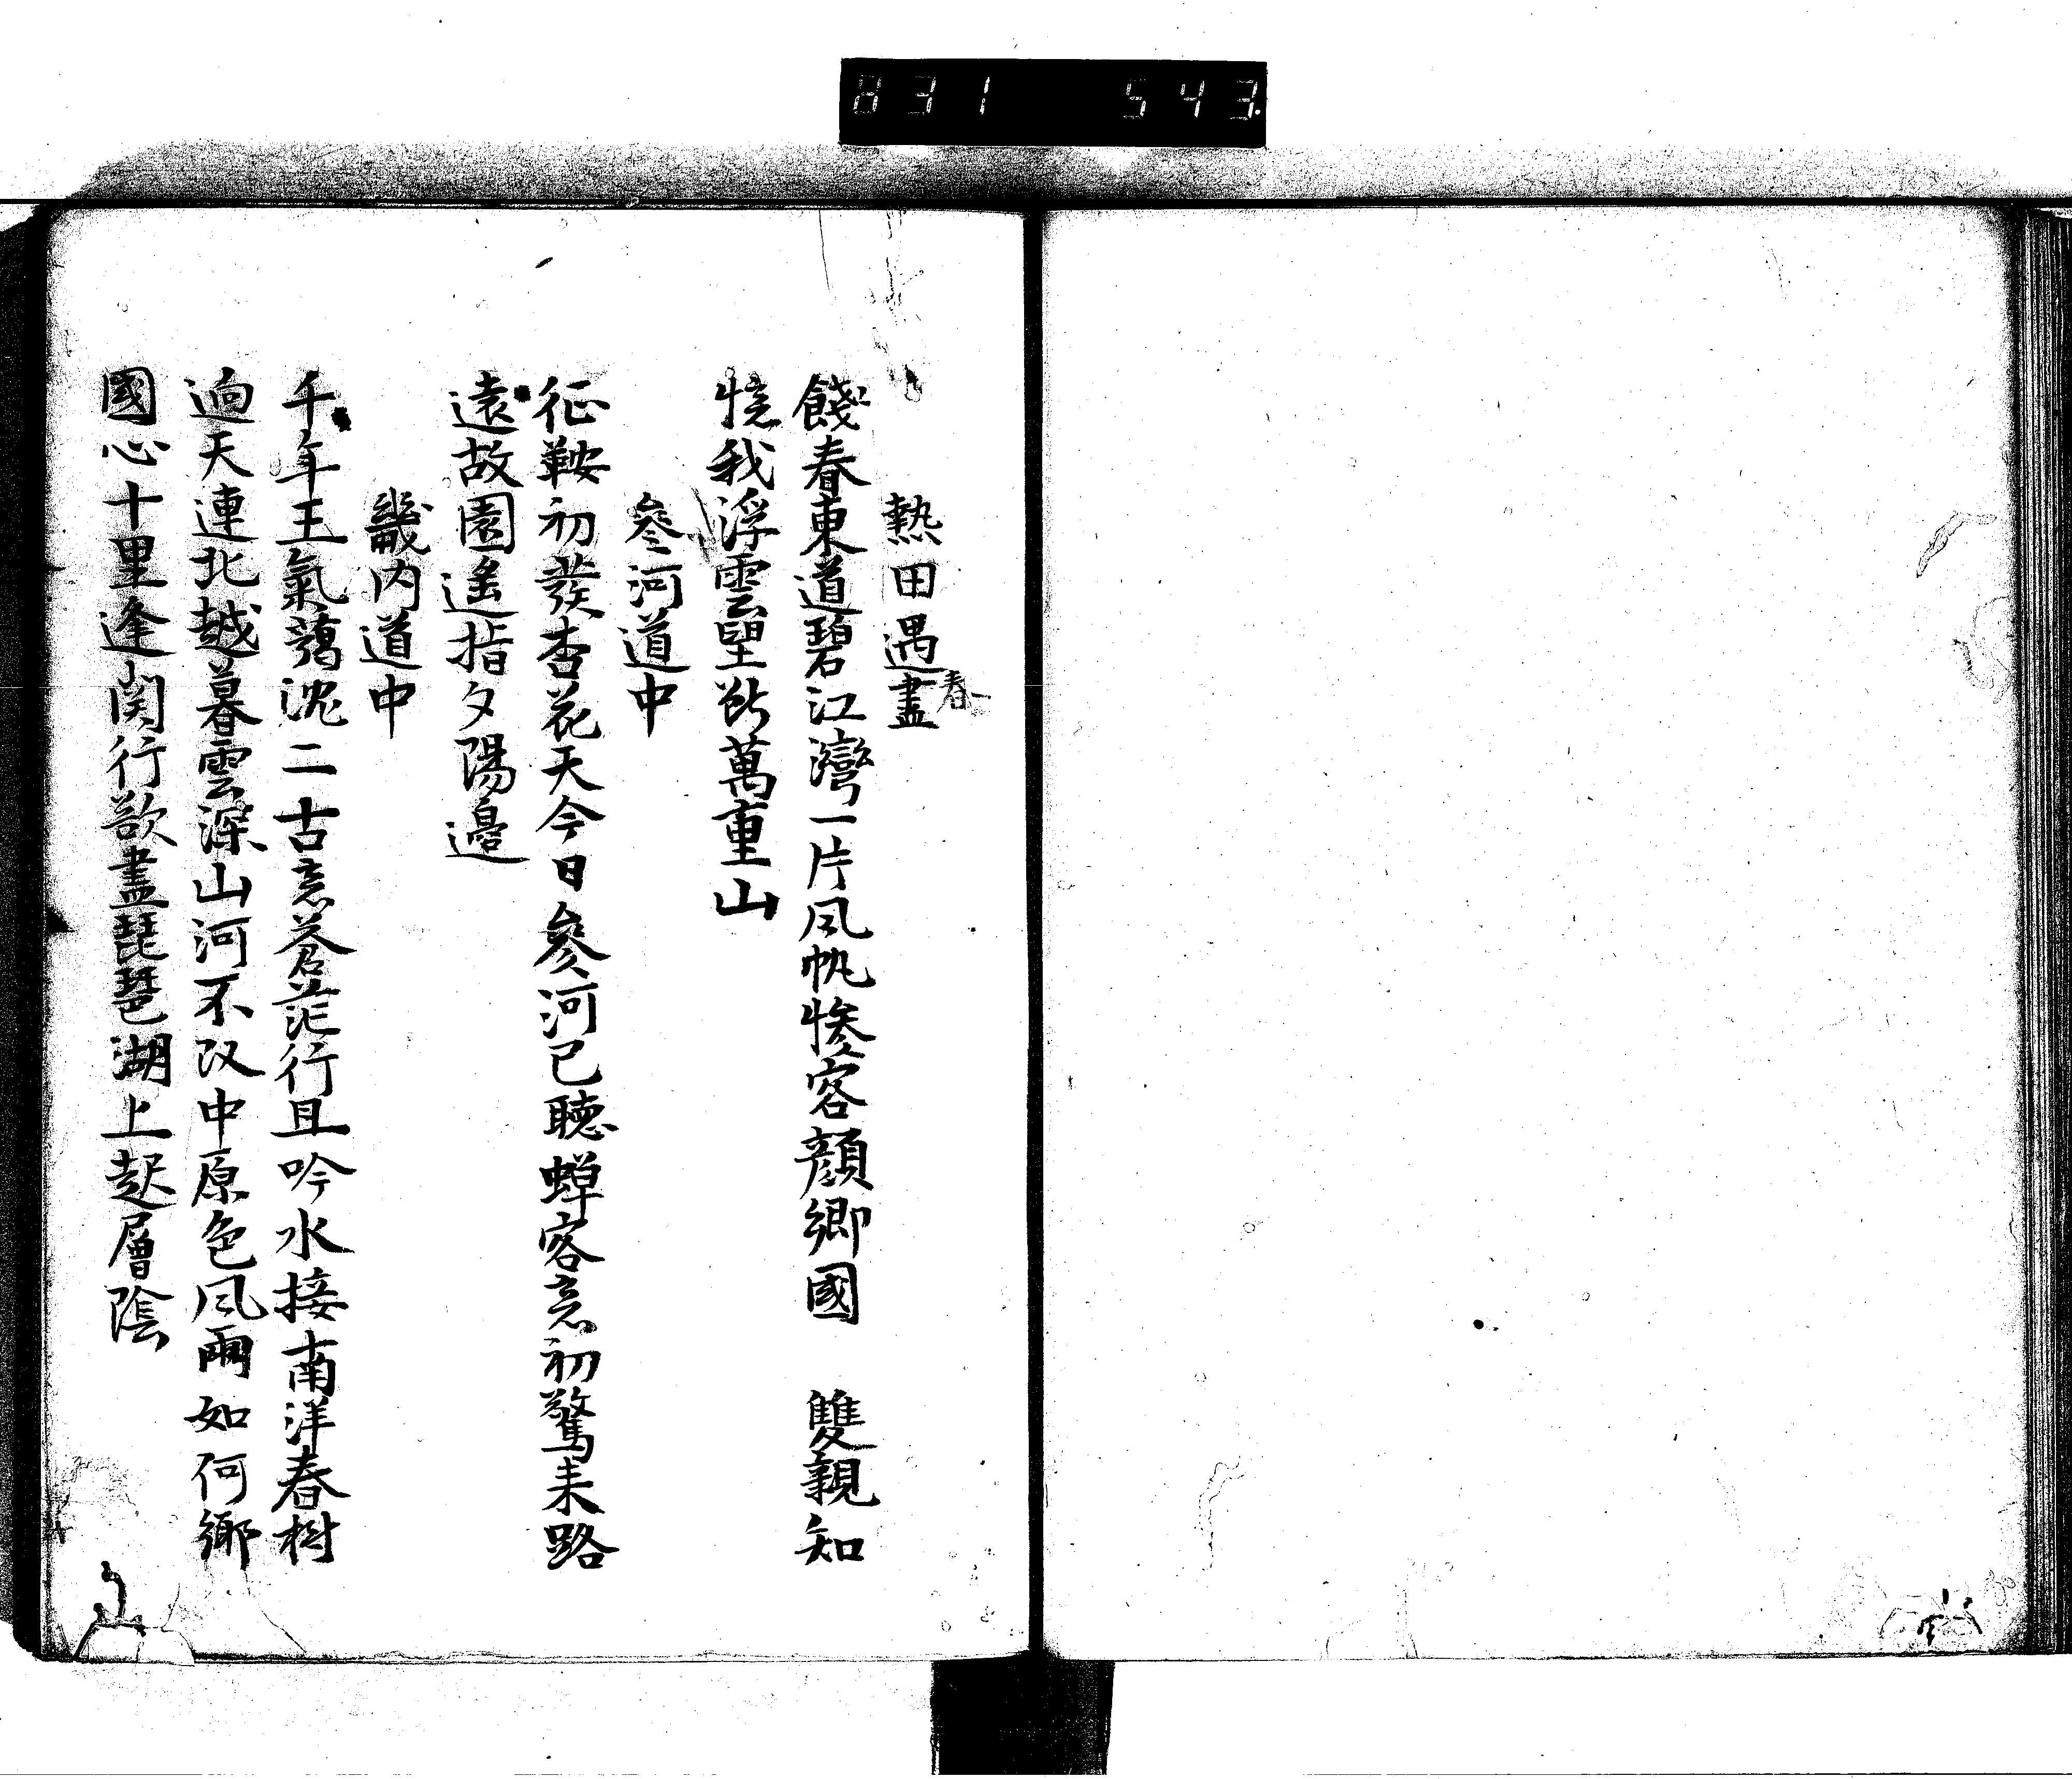 831 543
熱田遇春盡
餞春東道碧江灣一片風帆慘客顔郷國 雙親知
憶我浮雲望斷萬重山
參河道中
征鞍初發杏花天今日參河已聴蟬客意初驚来路
遠故園遙指夕陽邉
畿内道中
千年王氣藹沈二古意蒼茫行且吟水接南洋春樹
逈天連北越暮雲深山河不改中原色風雨如何郷
國心十里逢関行欲盡琵琶湖上起層陰